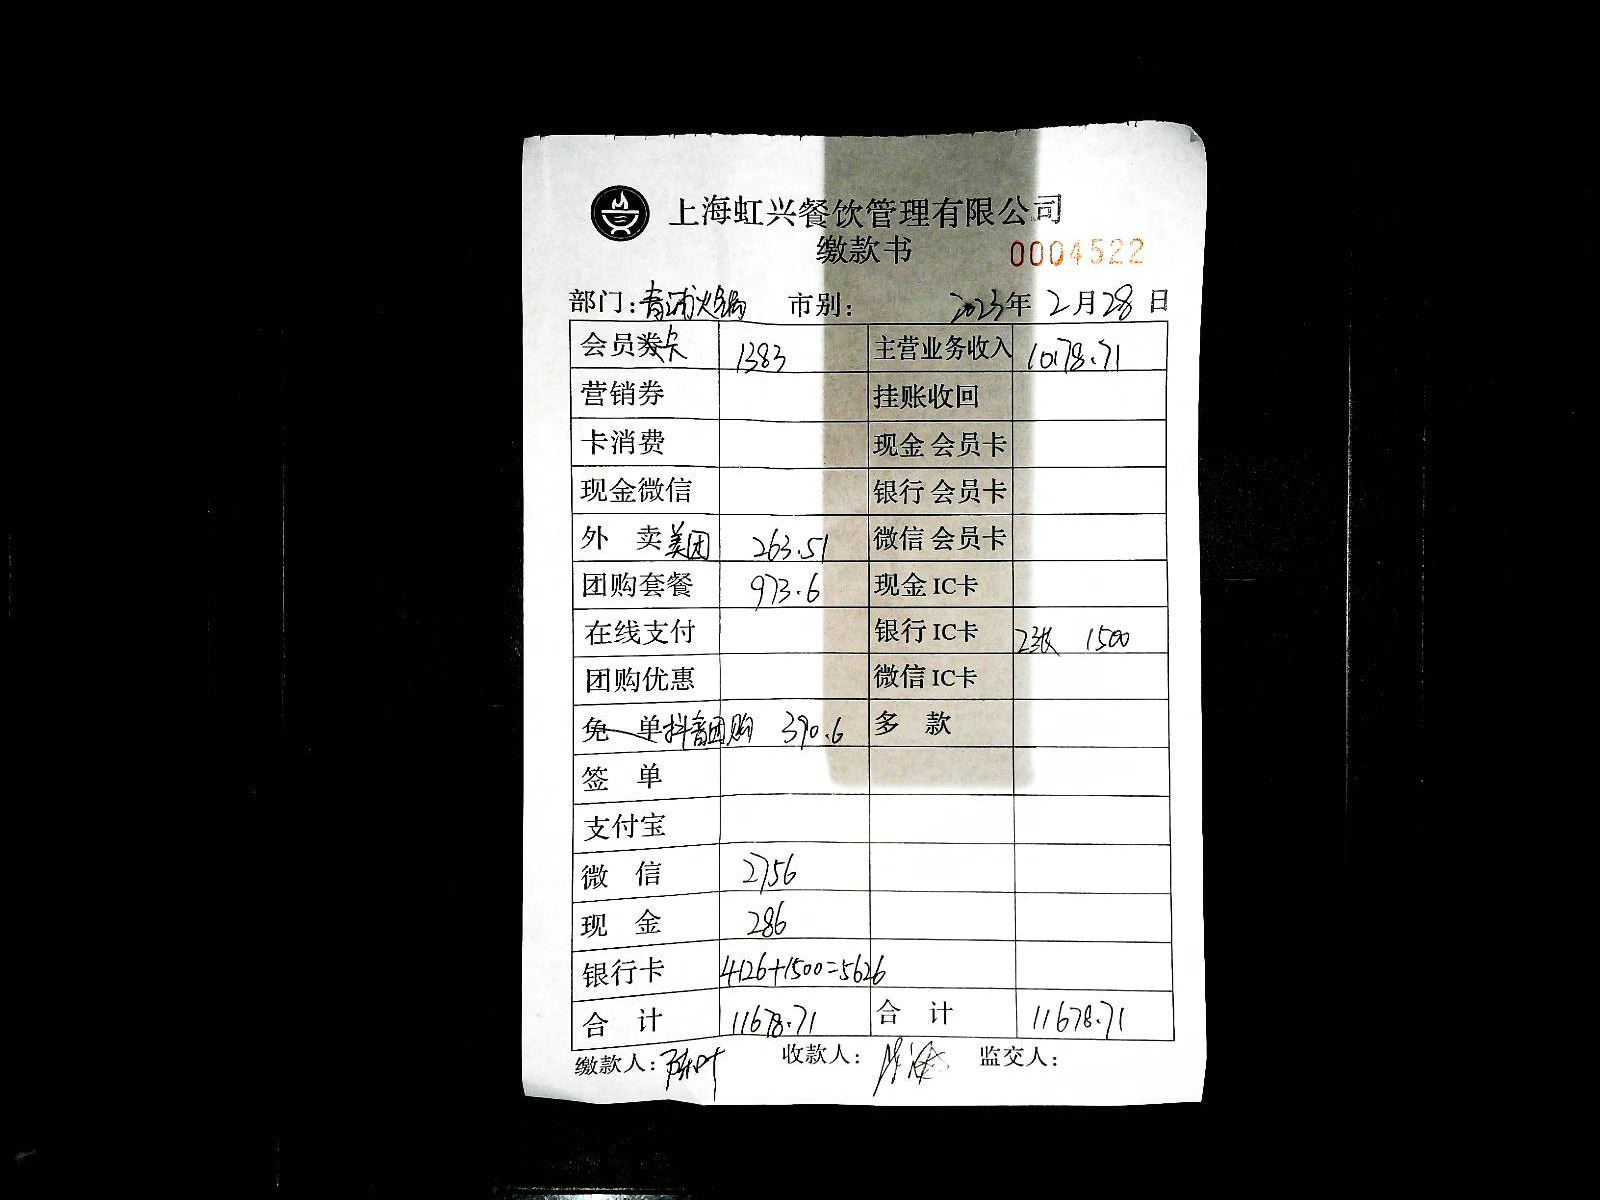 上海虹兴餐饮管理有限公司
缴款书 0004522
部门：青浦火锅 市别： 2023年 2月28日
会员卡 1383 主营业务收入 10178.71
营销券 挂账收回
卡消费 现金 会员卡
现金微信 银行 会员卡
外 卖 美团 263.51 微信 会员卡
团购套餐 973.6 现金 IC卡
在线支付 银行 IC卡 23张 1500
团购优惠 微信 IC卡
免 单 抖音团购 390.6 多 款
签 单
支付宝
微 信 2756
现 金 286
银行卡 4126+1500=5626
合 计 11678.71 合 计 11678.71
缴款人：陈叶 收款人： 监交人：